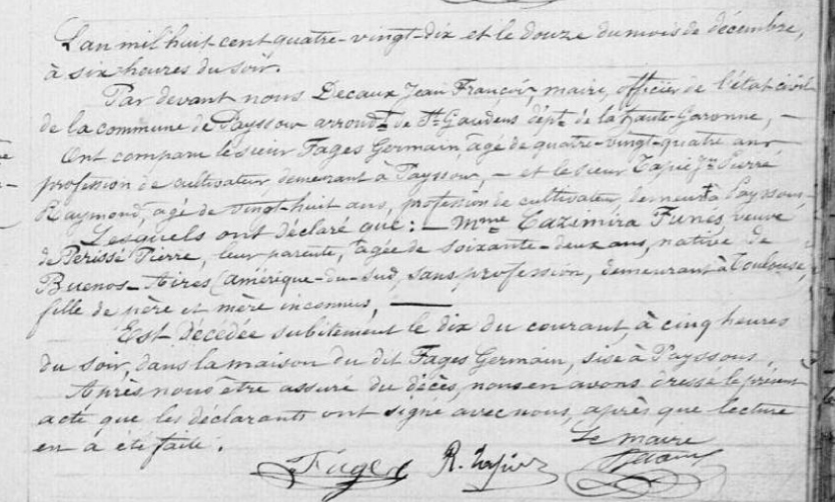 L'an mil huit cent quatre-vingt-dix et le douze du mois de décembre,
à six heures du soir.
Par devant nous Decaux Jean François, maire, officier de l'état civil
de la commune de Payssous arrondt de St Gaudens dépt de la haute-Garonne, —
Ont comparu le sieur Fages Germain, agé de quatre-vingt-quatre ans
profession de cultivateur, demeurant à Payssous, — et le sieur Tapie Jn Pierre
Raymond, agé de vingt-huit ans, profession de cultivateur, demeurt à Payssous,
Lesquels ont déclaré que : — Mme Cazimira Funes, veuve
de Perissé Pierre, leur parente, agée de soixante-deux ans, native de
Buenos-Aires (Amérique-du-Sud, sans profession, demeurant à Toulouse,
fille de père et mère inconnus, —
Est décédée subitement le dix du courant, à cinq heures
du soir, dans la maison du dit Fages Germain, sise à Payssous.
Après nous être assuré du décès, nous en avons dressé le présent
acte que les déclarants ont signé avec nous, après que lecture
en a été faite.
Le maire
Fages R. Tapie